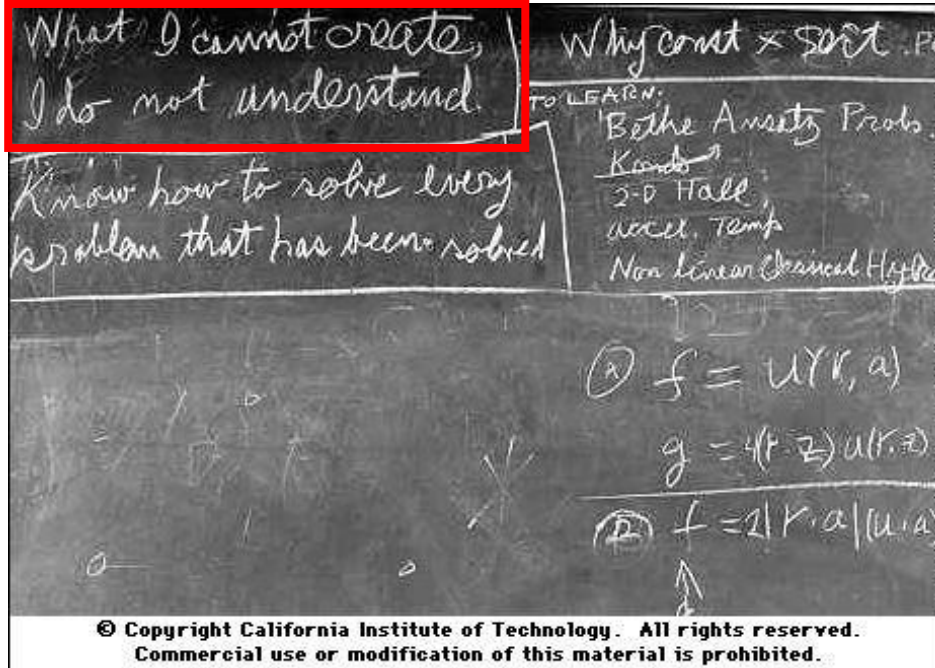 What I cannot create,
I do not understand.
Know how to solve every
problem that has been solved
Why const × sort . P
TO LEARN:
Bethe Ansatz Probs.
Kondo
2-D Hall
accel. Temp
Non linear Classical Hydro
f = u(r, a)
g = 4(r·z) u(r,z)
f = 2|r·a|(u·a)
© Copyright California Institute of Technology. All rights reserved.
Commercial use or modification of this material is prohibited.